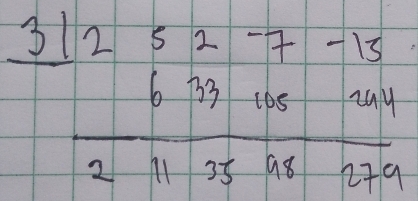 3| 2 5 2 -7 -15
6 33 105 294
2 11 35 98 279